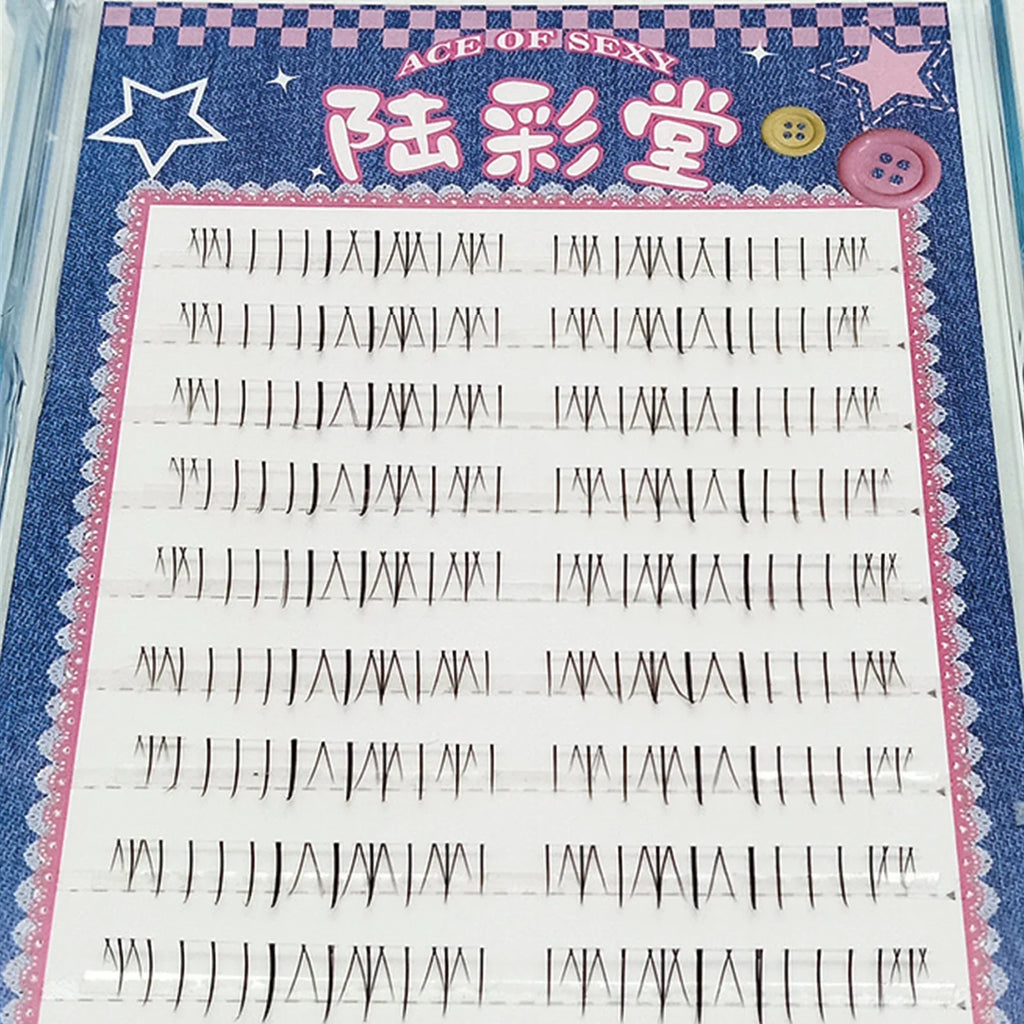 ACE OF SEXY
陆彩堂